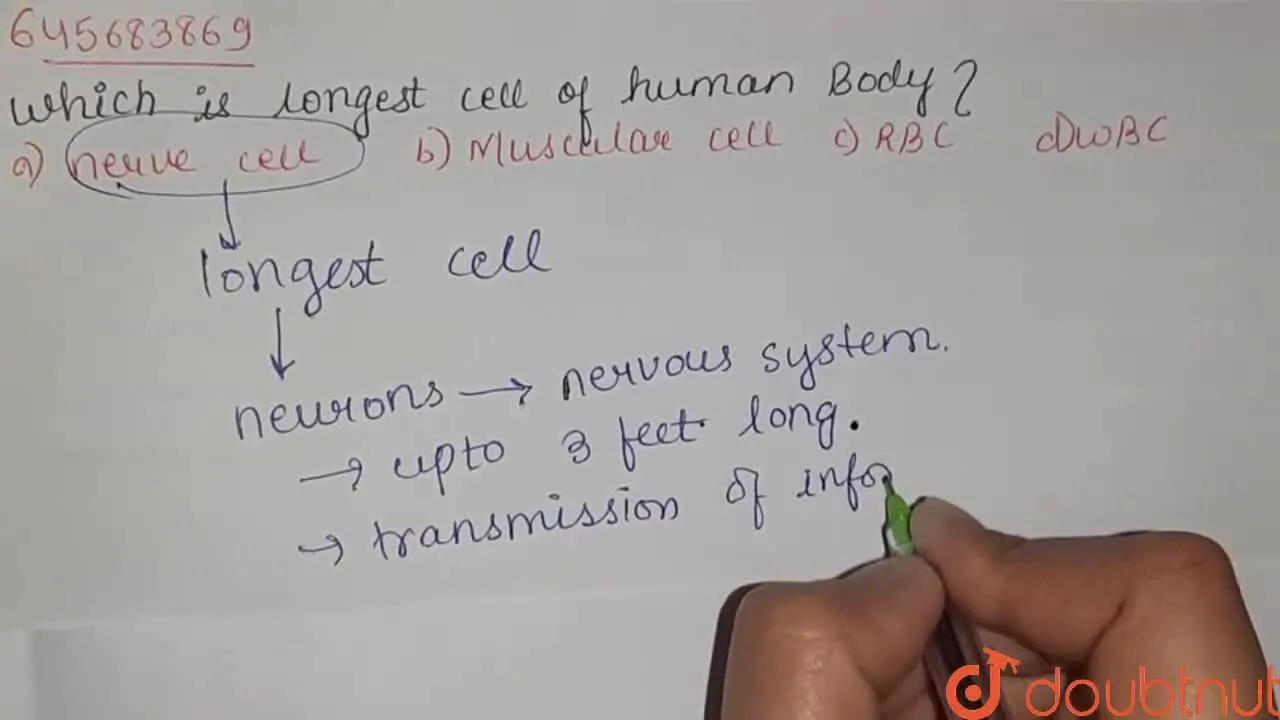 645683869
Which is longest cell of human Body?
a) nerve cell b) Muscular cell c) RBC d) WBC
longest cell
neurons → nervous system.
→ upto 3 feet long.
→ transmission of infor
doubtnut